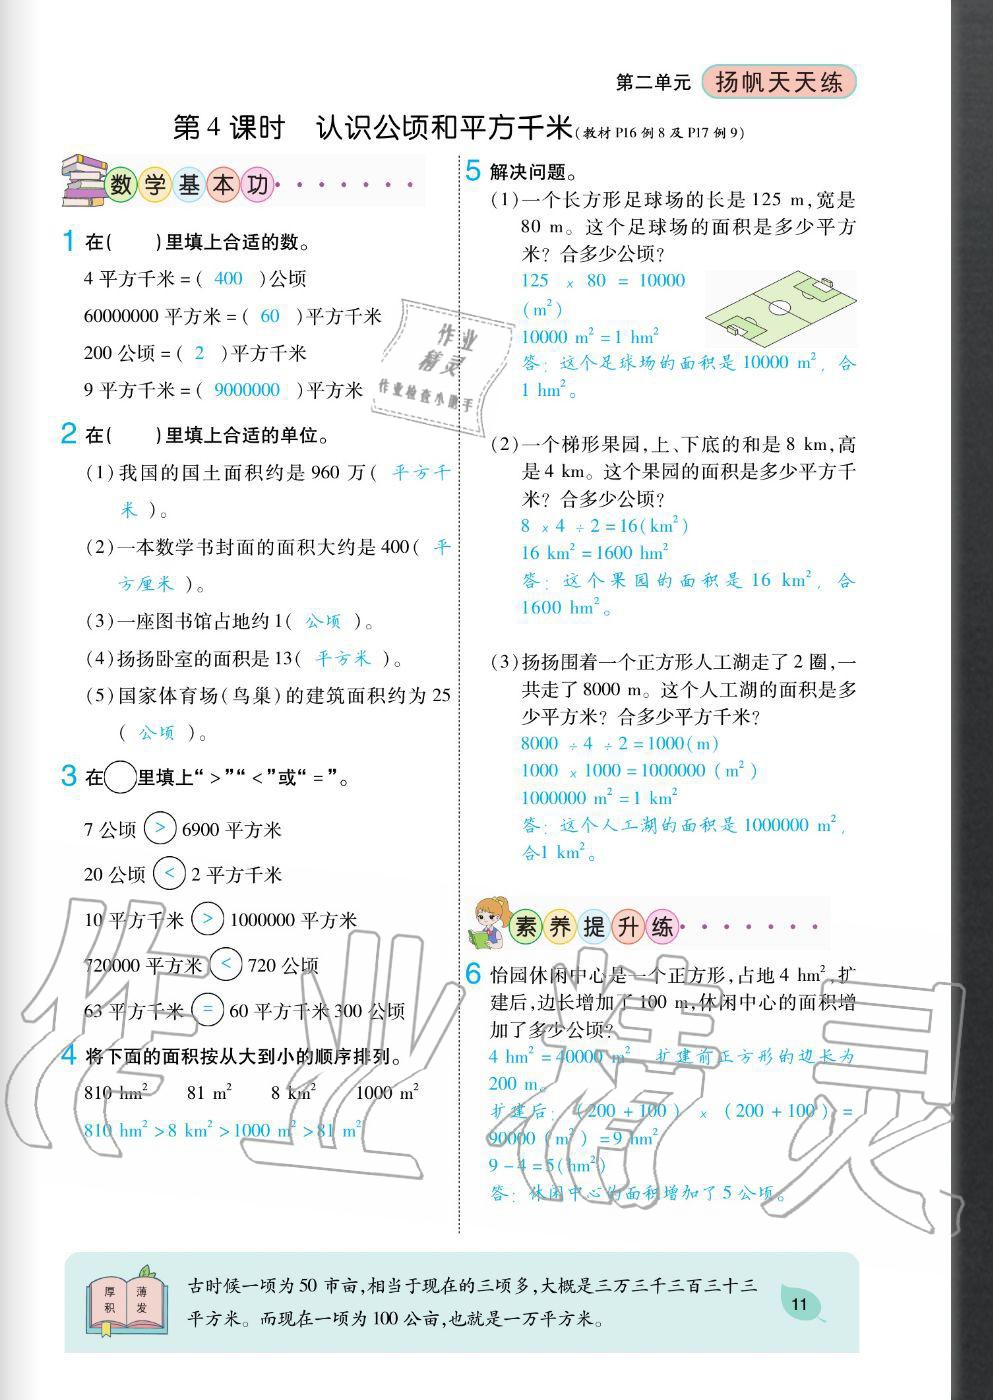 第二单元 扬帆天天练
第 4 课时 认识公顷和平方千米(教材 P16 例 8 及 P17 例 9)
数学基本功
1 在( )里填上合适的数。
4 平方千米 = ( 400 )公顷
60000000 平方米 = ( 60 )平方千米
200 公顷 = ( 2 )平方千米
9 平方千米 = ( 9000000 )平方米
2 在( )里填上合适的单位。
(1)我国的国土面积约是 960 万( 平方千
米 )。
(2)一本数学书封面的面积大约是 400( 平
方厘米 )。
(3)一座图书馆占地约 1( 公顷 )。
(4)扬扬卧室的面积是 13( 平方米 )。
(5)国家体育场(鸟巢)的建筑面积约为 25
( 公顷 )。
3 在○里填上“ > ”“ < ”或“ = ”。
7 公顷 > 6900 平方米
20 公顷 < 2 平方千米
10 平方千米 > 1000000 平方米
720000 平方米 < 720 公顷
63 平方千米 = 60 平方千米 300 公顷
4 将下面的面积按从大到小的顺序排列。
810 hm² 81 m² 8 km² 1000 m²
810 hm² > 8 km² > 1000 m² > 81 m²
5 解决问题。
(1)一个长方形足球场的长是 125 m,宽是
80 m。这个足球场的面积是多少平方
米？合多少公顷？
125 × 80 = 10000
(m²)
10000 m² = 1 hm²
答：这个足球场的面积是 10000 m²，合
1 hm²。
(2)一个梯形果园,上、下底的和是 8 km,高
是 4 km。这个果园的面积是多少平方千
米？合多少公顷？
8 × 4 ÷ 2 = 16(km²)
16 km² = 1600 hm²
答：这个果园的面积是 16 km²，合
1600 hm²。
(3)扬扬围着一个正方形人工湖走了 2 圈,一
共走了 8000 m。这个人工湖的面积是多
少平方米？合多少平方千米？
8000 ÷ 4 ÷ 2 = 1000(m)
1000 × 1000 = 1000000 (m²)
1000000 m² = 1 km²
答：这个人工湖的面积是 1000000 m²，
合1 km²。
素养提升练
6 怡园休闲中心是一个正方形,占地 4 hm²,扩
建后,边长增加了 100 m,休闲中心的面积增
加了多少公顷？
4 hm² = 40000 m² 扩建前正方形的边长为
200 m。
扩建后：（200 + 100）×（200 + 100）=
90000（m²）= 9 hm²
9 - 4 = 5(hm²)
答：休闲中心的面积增加了 5 公顷。
厚积 薄发
古时候一顷为 50 市亩,相当于现在的三顷多,大概是三万三千三百三十三
平方米。而现在一顷为 100 公亩,也就是一万平方米。
11
作业
精灵
作业检查小助手
作业精灵